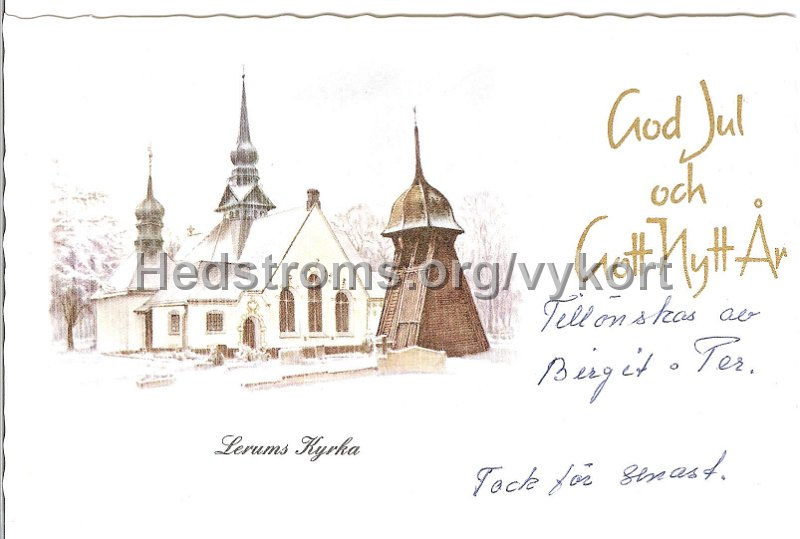 God Jul
och
Gott Nytt År
Hedstroms.org/vykort
Tillönskas av
Birgit o Per.
Lerums Kyrka
Tack för senast.